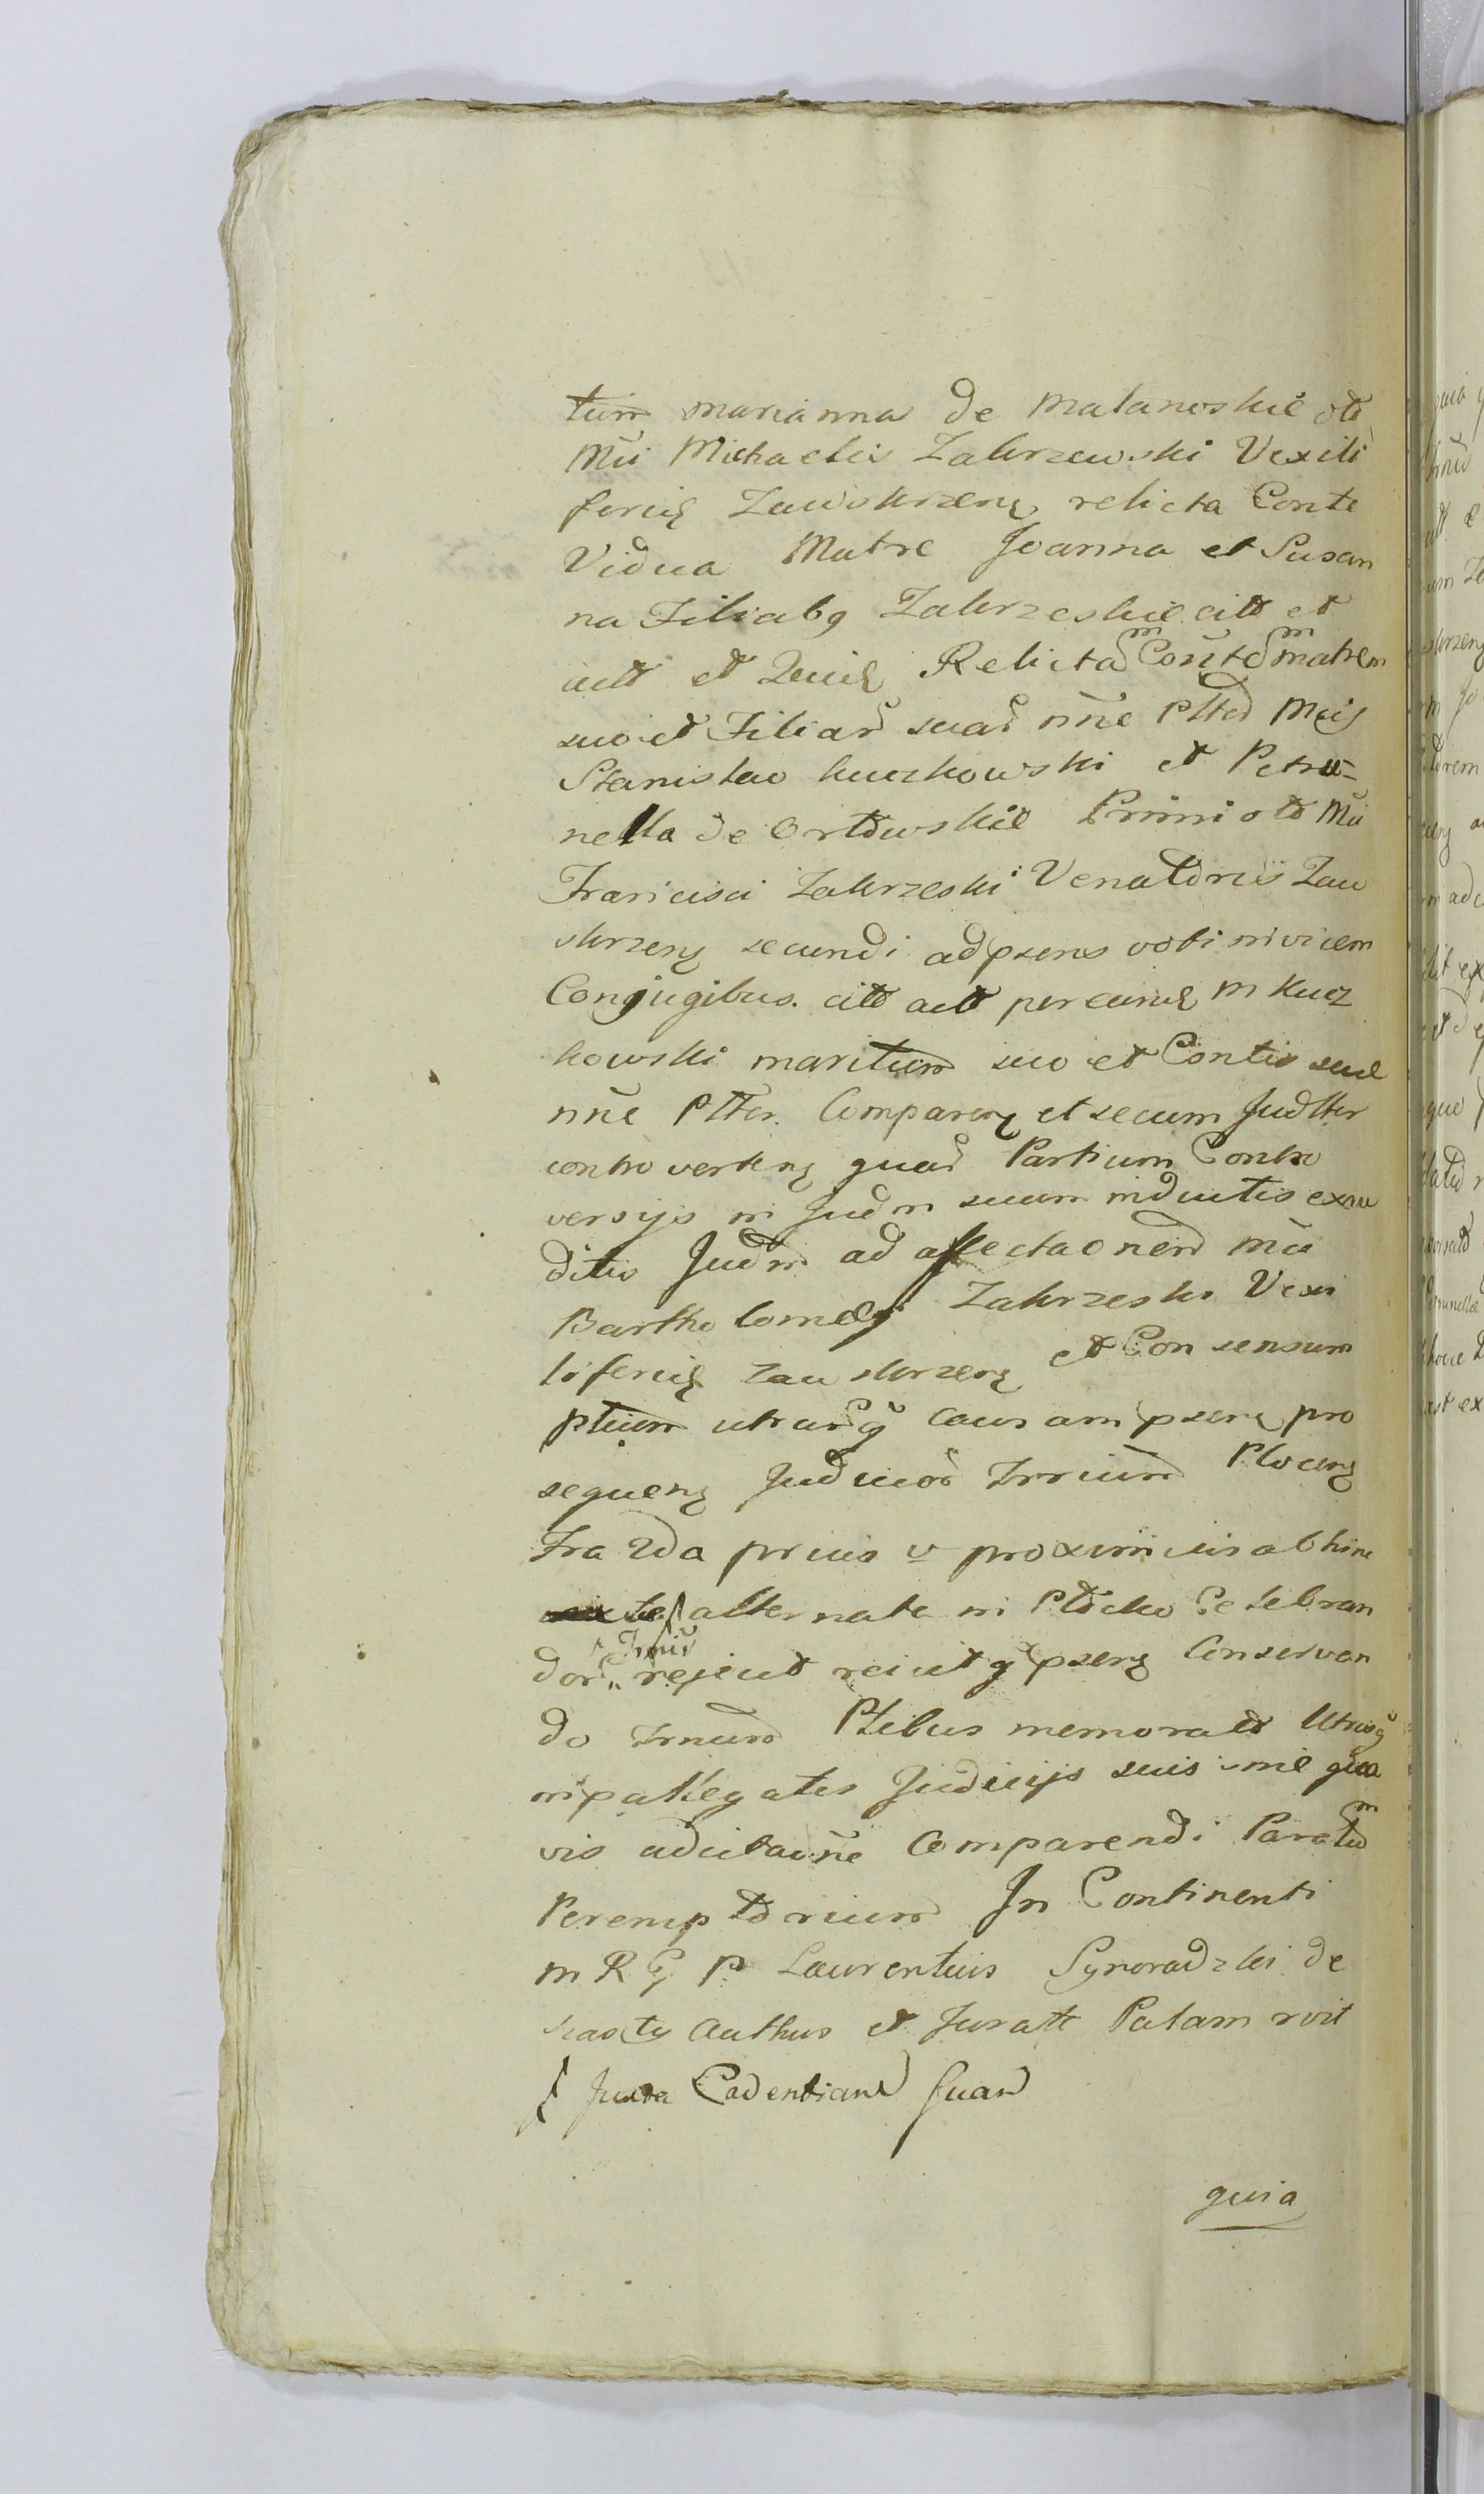 tum Marianna de Malanoskie oti
Mci Michaelis Zakrzewski Vexili
feri Zawskrzen relicta Conte
Vidua Matre Joanna et Susan
na Filiabq Zakrzeskie citt et
act et Relictam Contem matrem
suo et Filiar suar nne Ptted Mcis
Stanislao Kuczkowski et Petro=
nella de Orłowskie Primi oti Mci
Francisci Zakrzeski Venatoris Zaw
skrzen secundi adpsens voti invicem
Conjugibus. citt act per eund M Kucz
kowski maritum suo et Contis suae
nne Ptter. Comparen et secum Judtter
controverten quar Partium Contro
versijs in Judm suum inductis exau
ditis Judm ad affectaonem Mci
Bartholomei Zakrzeski Vexi
liferi Zawskrzen et Consensum
ptium utrarq causam psen pro
sequen Judicior Trrium Plocen
Fra 2da prius v proximius abhinc
alternate in Płocko Celebran
dor Trmin rejecit reicitq psen Conservan
do Trnum Ptibus memorat Utrisq
inpallegatis Judicijs suis sine qua
vis adcitaone Comparendi Paratum
Peremptorium In Continenti
M R G P Laurentius Synoradzki de
hasty Authus et Juratt Palam roit
ſ Juxta Cadentiam suam
quia